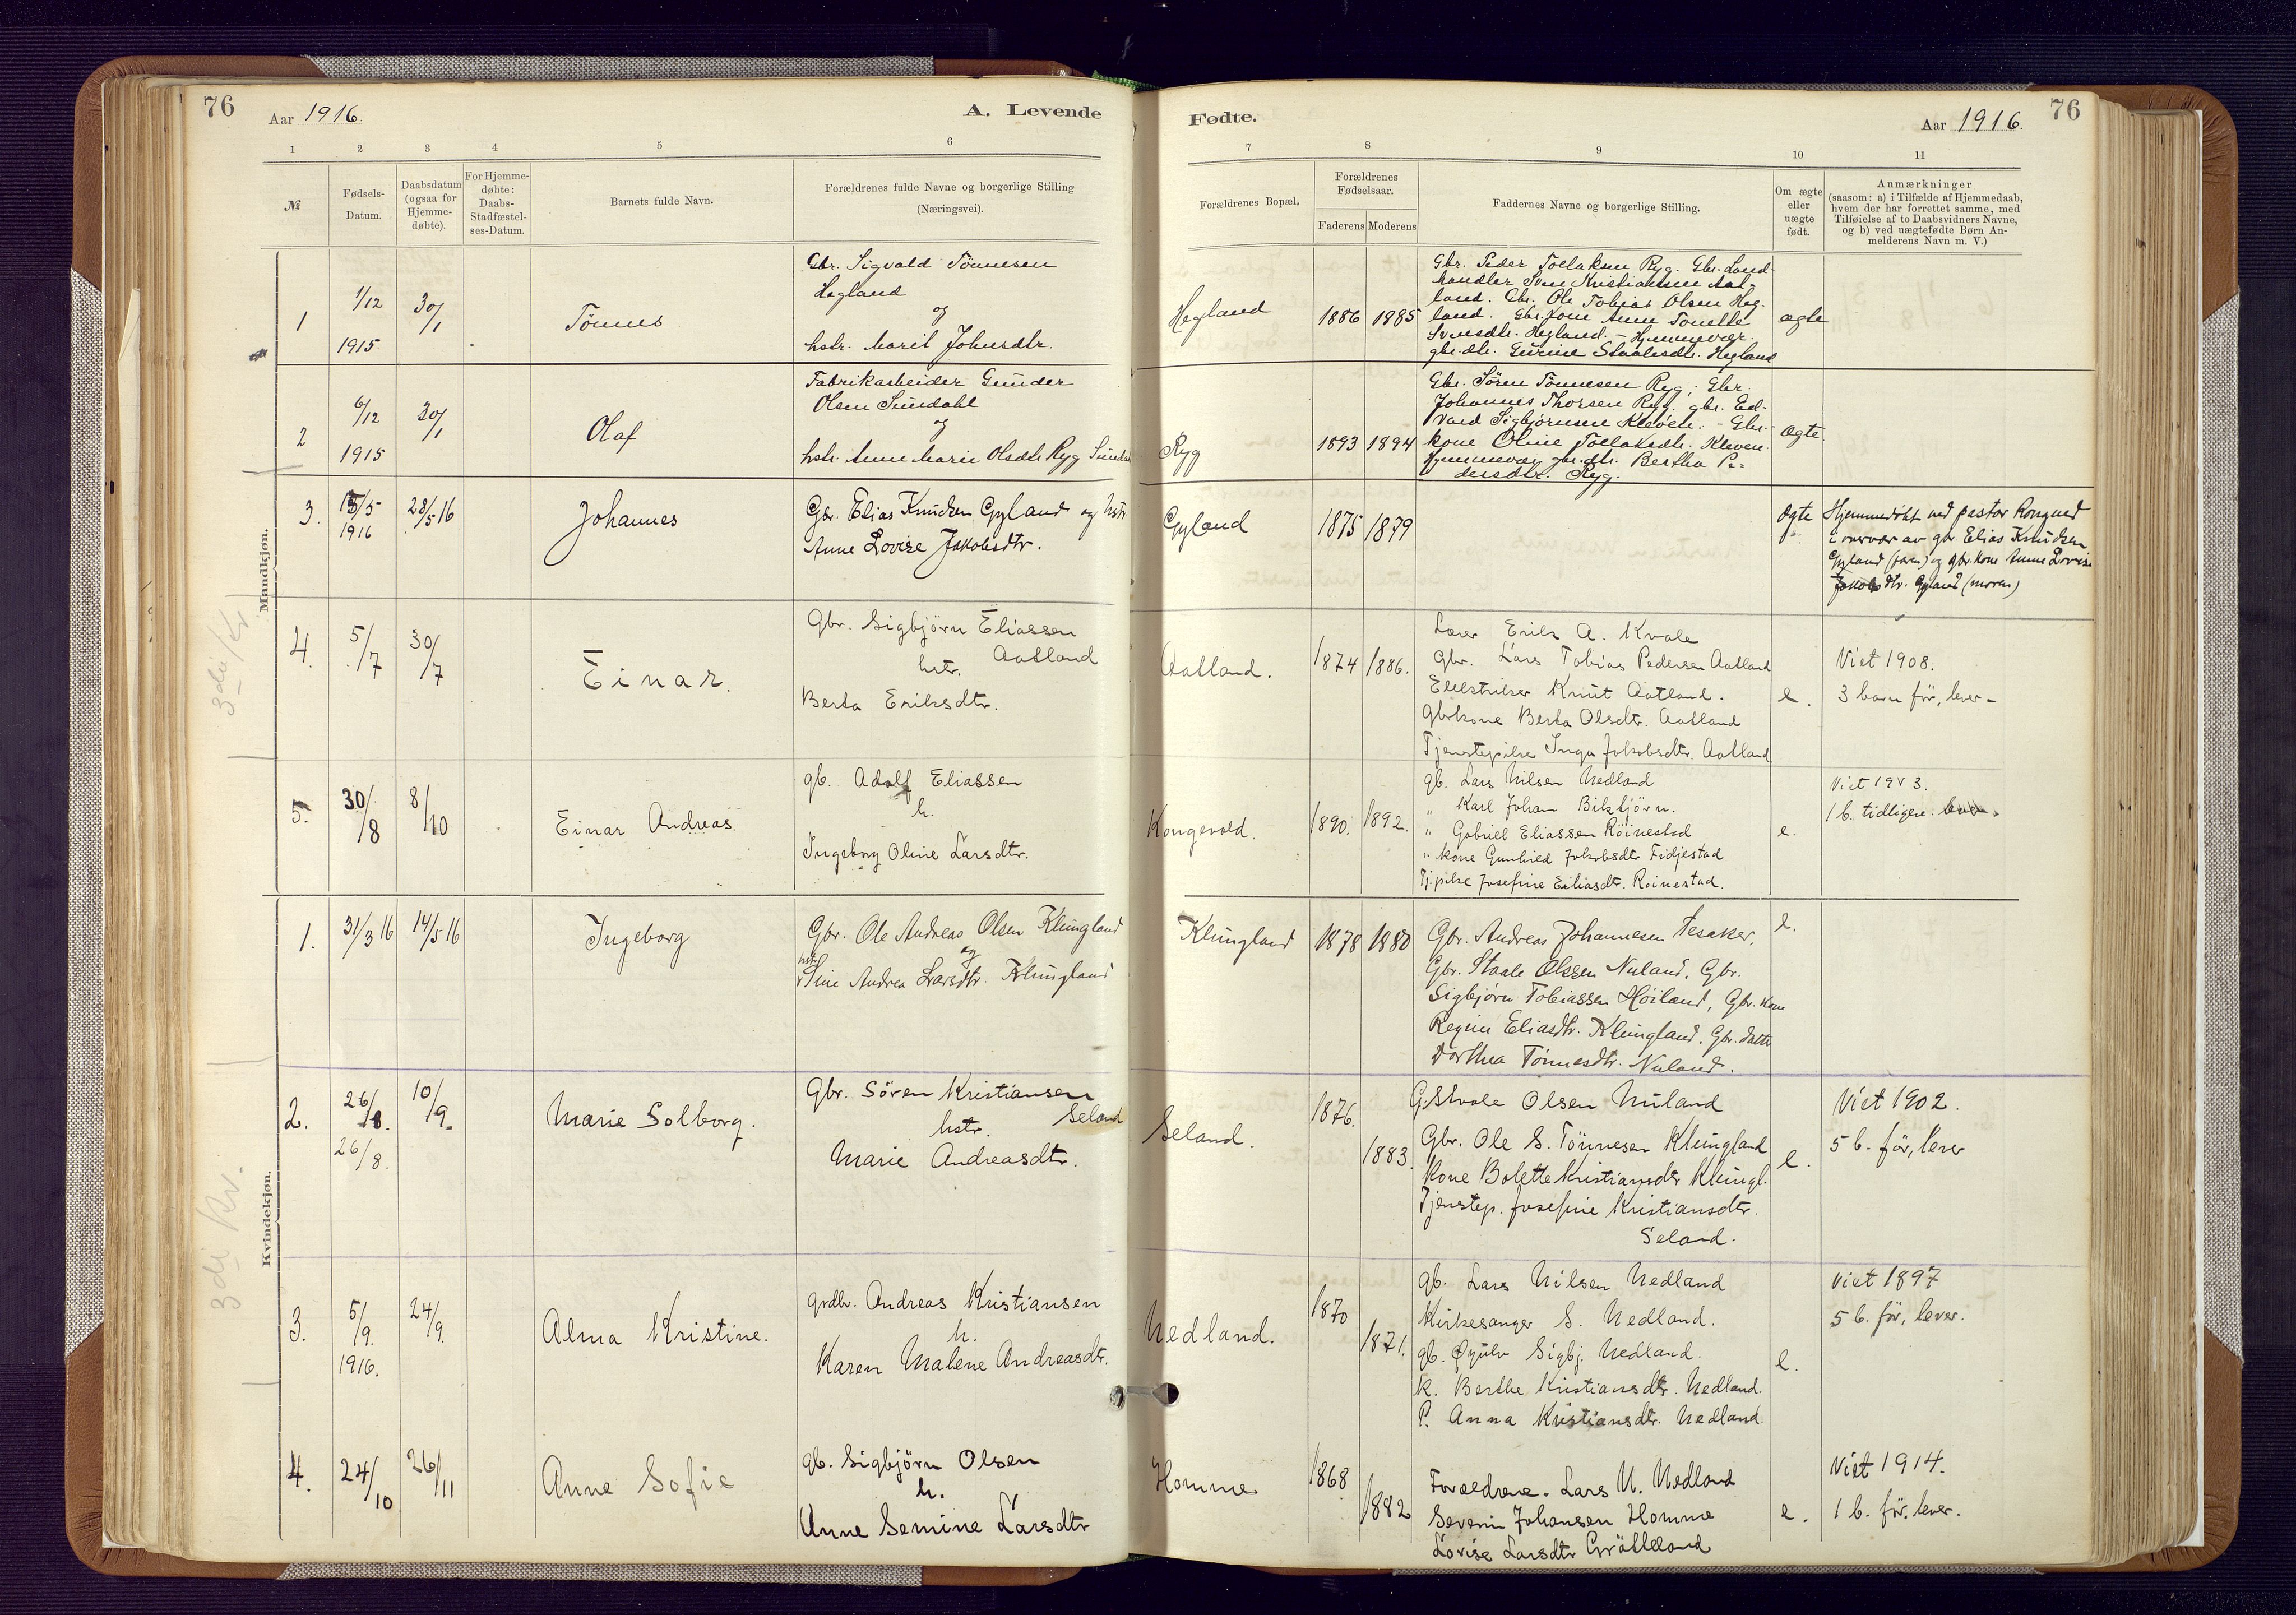 76
Aar 1916.
A. Levende
Fødte.
Aar 1916.
76
1 2 3 4 5 6 7 8 9 10 11
№
Fødsels-
Datum.
Daabsdatum
(ogsaa for
Hjemme-
døbte).
For Hjemme-
døbte:
Daabs-
Stadfæstel-
ses-Datum.
Barnets fulde Navn.
Forældrenes fulde Navne og borgerlige Stilling
(Næringsvei).
Forældrenes Bopæl.
Forældrenes
Fødselsaar.
Faderens Moderens
Faddernes Navne og borgerlige Stilling.
Om ægte
eller
uægte
født.
Anmærkninger
(saasom: a) i Tilfælde af Hjemmedaab,
hvem der har forrettet samme, med
Tilføielse af to Daabsvidners Navne,
og b) ved uægtefødte Børn An-
melderens Navn m. V.)
Mandkjøn.
1
1/12
1915
30/1
Tønnes
Gbr. Sigvald Tønnesen
Hegland
og
hstr. Marit Johnsdtr.
Hegland
1886 1885
Gbr. Peder Tollaksen Ryg. Gbr. Land-
handler Sven Kristiansen Aat-
land. Gbr. Ole Tobias Olsen Heg-
land. Gbr. kone Anne Tonette
Svensdtr. Hegland. - Hjemmevær.
gbr. dtr. Gurine Staalesdtr. Hegland
ægte
2
6/12
1915
30/1
Olaf
Fabrikarbeider Gunder
Olsen Sundahl
og
hstr. Anne Marie Olsdtr Ryg
Ryg
1893 1894
Gbr. Søren Tønnesen Ryg; Gbr.
Johannes Thorsen Ryg. gbr. Ed-
vard Sigbjørnsen Kleven. - Gbr.-
kone Oline Tollaksdtr. Kleven.
Hjemmevær. gbr. dtr. Bertha Pe-
dersdtr. Ryg.
ægte
3.
15/5
1916
28/5 16
Johannes
Gbr. Elias Knudsen Gyland og hstr.
Anne Lovise Jakobsdtr.
Gyland
1875 1879
ægte
Hjemmedøbt ved pastor Kongsed
i overvær av gbr Elias Knudsen
Gyland (faren) og gbr. kone Anne Lovise
Jakobsdtr. Gyland (moren)
4.
5/7
30/7
Einar.
Gbr. Sigbjörn Eliassen
Aatland
hstr.
Berta Eriksdtr.
Aatland.
1874 1886.
Lærer Erik A. Kvale
Gbr. Lars Tobias Pedersen Aatland
Knut Aatland.
Gbrkone Berta Olsdtr. Aatland
Tjenstepike Inga Jakobsdtr. Aatland
e.
Viet 1908.
3 barn för, lever -
5.
30/8
8/10
Einar Andreas.
gb. Adolf Eliassen
h.
Ingeborg Oline Larsdtr.
Kongevold.
1890. 1892.
gb. Lars Nilsen Nedland
" Karl Johan Bilsbjörn.
" Gabriel Eliassen Röinestad
" kone Gunhild Jakobsdtr Fidjestad
Tj. pike Josefine Eiliasdtr. Roinestad.
e.
Viet 1913.
1 b. tidligere. lever.
Kvindekjøn.
1.
31/3 16
14/5 16
Ingeborg
Gbr. Ole Andreas Olsen Klungland
og
hstr. Sine Andrea Larsdtr. Klungland
Klungland
1878 1880
Gbr. Andreas Johannesen Tesaker.
Gbr. Staale Olssen Nuland. Gbr.
Sigbjørn Tobiassen Høiland, Gbr. kone
Regine Eliasdtr. Klungland. Gbr. datter
Dorthea Tønnesdtr. Nuland.
e.
2.
26/8.
26/8.
10/9.
Marie Solborg.
Gbr. Sören Kristiansen
Seland
hstr.
Marie Andreasdtr.
Seland.
1876.
1883.
G. Staale Olsen Nuland
Gbr. Ole S. Tönnesen Klungland
Kone Bolette Kristiansdtr Klungl.
Tjenstep. Josefine Kristiansdtr.
Seland.
e.
Viet 1902.
5 b. för, lever
3.
5/9.
1916.
24/9.
Alma Kristine.
grdbr. Andreas Kristiansen
h.
Karen Malene Andreasdtr.
Nedland.
1870
1871.
gb. Lars Nilsen Nedland
Kirkesanger S. Nedland.
gb. Øyulv Sigbj. Nedland.
k. Berthe Kristiansdtr. Nedland.
P. Anna Kristiansdtr. Nedland.
e.
Viet 1897
5 b. för, lever.
4.
24/10
26/11
Anne Sofie
gb. Sigbjörn Olsen
h.
Anne Semine Larsdtr
Homme
1868
1882
Foreldrene. Lars N. Nedland
Severin Johansen Homme
Lovise Larsdtr Grötteland
e.
Viet 1914.
1 b. för, lever.
3die/Kr.
3di Kv.